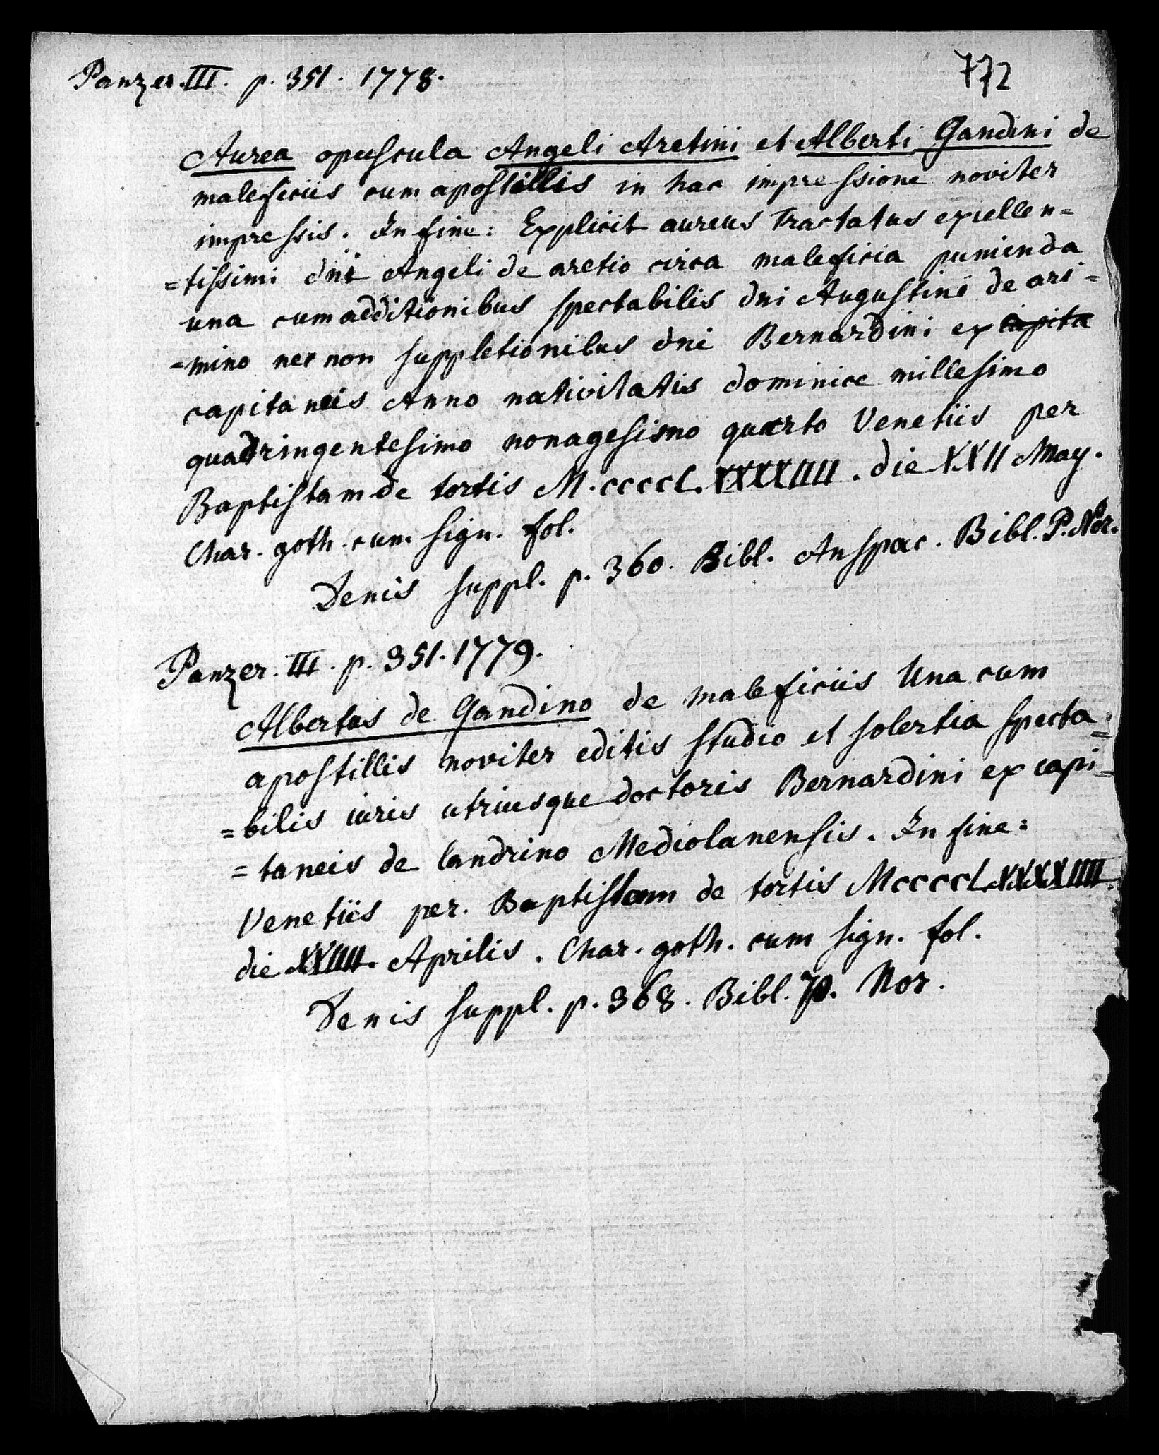 Panzer. III. p. 351. 1778.
772
Aurea opuscula Angeli Aretini et Alberti Gandini de
maleficiis cum apostillis in hac impressione noviter
impressis. In fine: Explicit aureus Tractatus excellen=
=tissimi dni Angeli de aretio circa maleficia punienda
una cum additionibus spectabilis dni Augustini de ari=
=mino nec non suppletionibus dni Bernardini ex capita
capitaneis Anno nativitatis dominice millesimo
quadringentesimo nonagesimo quarto Venetiis per
Baptistam de tortis M.ccccL.XXXXIIII. die XXII May.
Char. goth. cum sign. fol.
Denis suppl. p. 360. Bibl. Anspac. Bibl. P. Nor.
Panzer. III. p. 351. 1779.
Albertus de Gandino de maleficiis Una cum
apostillis noviter editis studio et solertia specta=
=bilis iuris utriusque doctoris Bernardini ex capi=
=taneis de landrino Mediolanensis. In fine:
Venetiis per. Baptistam de tortis MccccL.XXXXIIII.
die XXIIII. Aprilis. Char. goth. cum sign. fol.
Denis suppl. p. 368. Bibl. P. Nor.